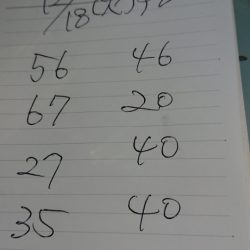 12/18(火)
56 46
67 20
27 40
35 40